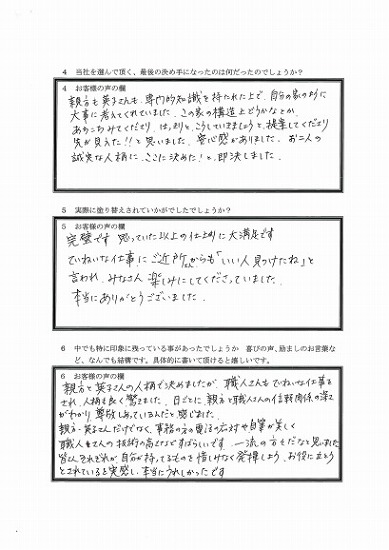 4 当社を選んで頂く、最後の決め手になったのは何だったのでしょうか?
4 お客様の声の欄
親方も英子さんも、専門的知識を持たれた上で、自分の家の様に
大事に考えてくれていました。この家の構造上どうかなとか、
あちこちみてくださり、はっきりと、こうしていきましょうと、提案してくださり
先が見えた!!と思いました。安心感がありました。お二人の
誠実な人柄に、ここに決めた!と、即決しました。
5 実際に塗り替えされていかがでしたでしょうか?
5 お客様の声の欄
完璧です 思っていた以上の仕上りに大満足です
ていねいな仕事にご近所さんからも「いい人見つけたね」と
言われ、みなさん楽しみにしてくださっていました。
本当にありがとうございました。
6 中でも特に印象に残っている事があったでしょうか 喜びの声、励ましのお言葉な
ど、なんでも結構です。具体的に書いて頂けると嬉しいです。
6 お客様の声の欄
親方と英子さんの人柄で決めましたが、職人さんもていねいな仕事を
され、人柄も良く驚きました。日ごとに、親方と職人さんの信頼関係の深さ
がわかり 尊敬しあっているんだと感じました。
親方・英子さんだけでなく、事務の方の電話の応対や自筆が美しく
職人さんの技術の高さなどすばらしいです。一流の方たちだなと思いました
皆さんそれぞれが自分が持ってるものを惜しみなく発揮しよう、お役に立とう
とされているを実感し、本当にうれしかったです